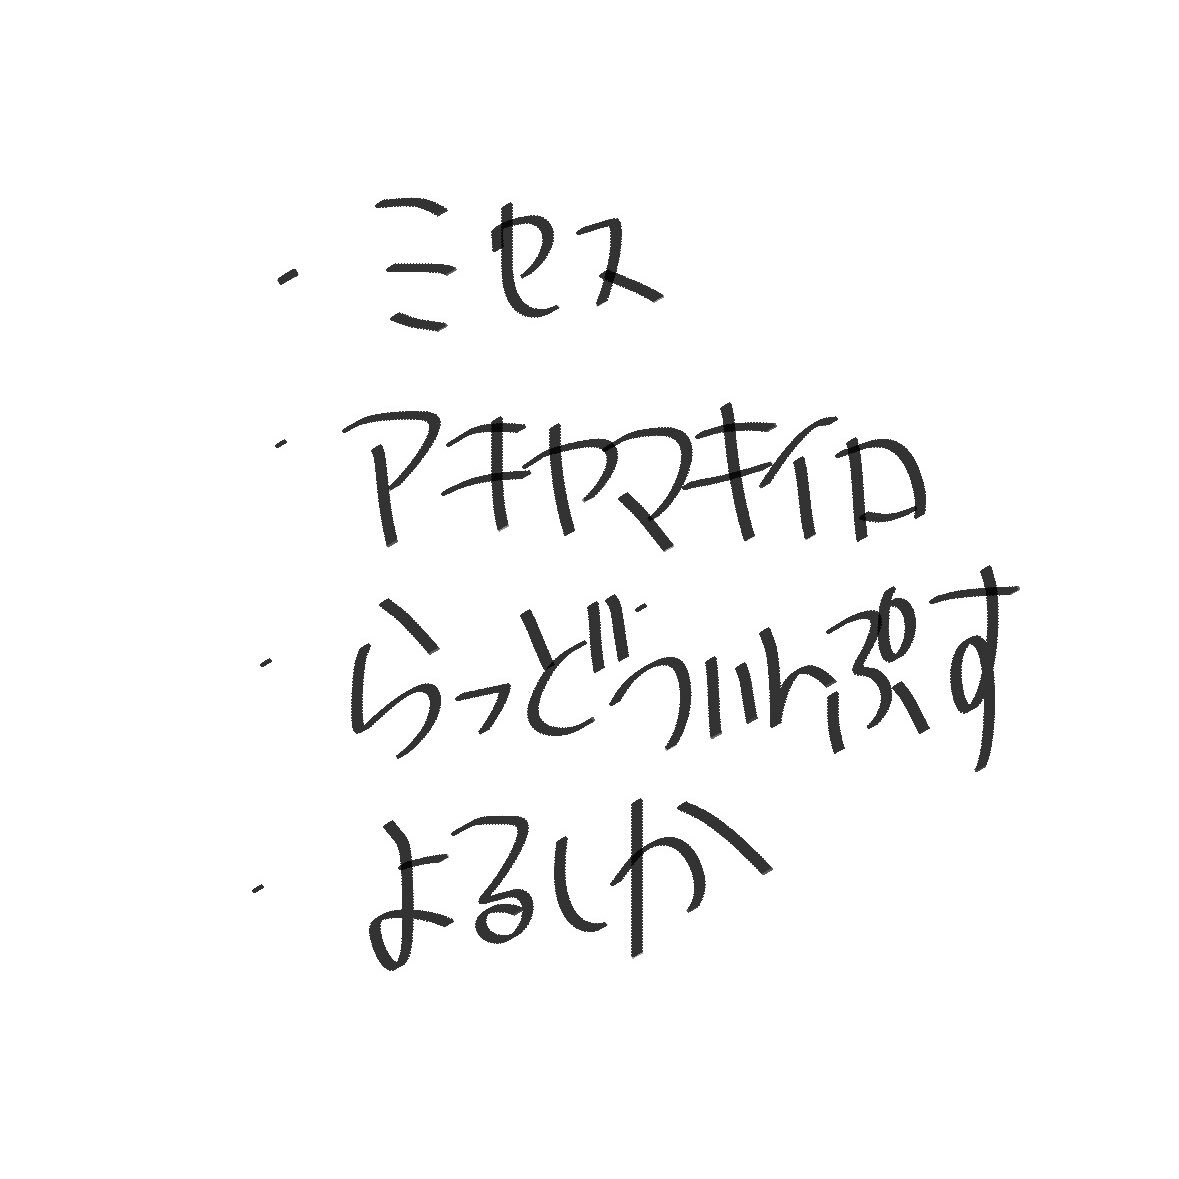 ・ミセス
・アキヤマキイロ
・らっどういんぷす
・よるしか